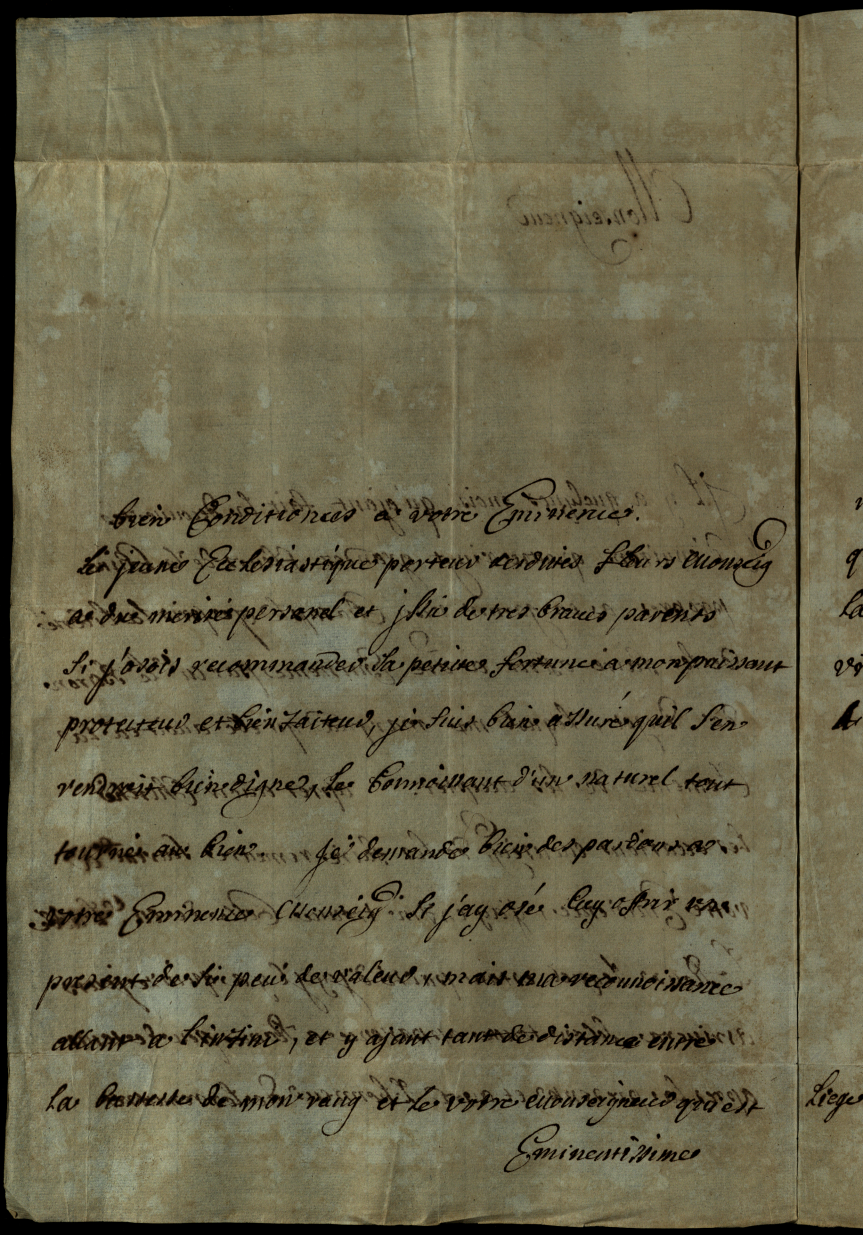 bien Conditionées a votre Eminence.
Le jeune Ecclesiastique porteur desdites fleurs Monseig
a du merite personel et fils de tres braves parents
Si j'osois recommander sa petite fortune a mon puissant
protecteur et bienfaiteur, je suis bien assuré quil s'en
rendroit bien digne, le Connoissant d'un naturel tout
tourné au bien Je demande bien des pardons a
votre Eminence Monseigr. Si j'ay osé luy offrir un
present de si peu de valeur, mais ma reconnoissance
allant a l'infini, et y ajant tant de distance entre
la bassesse de mon rang et le votre Monseigneur qui est
Eminentissime
Liege